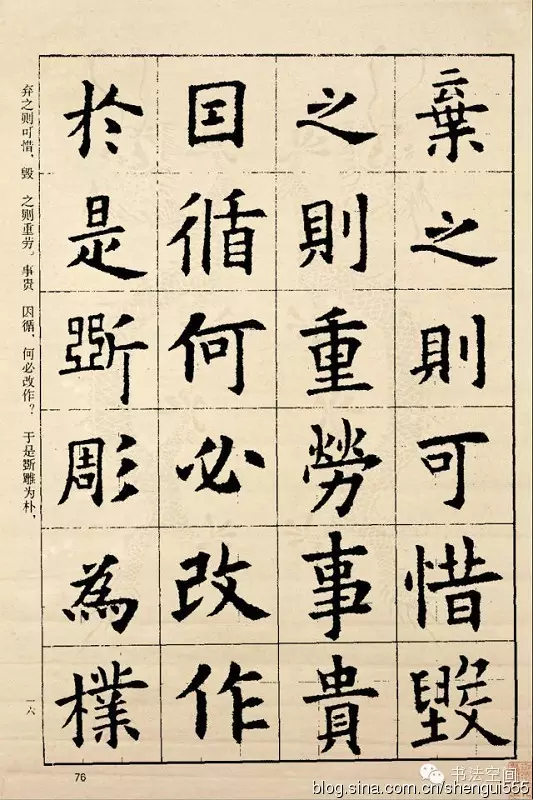 棄之則可惜毀
之則重勞事貴
因循何必改作
於是斲彫為樸
弃之则可惜、毁 之则重劳。事贵 因循、何必改作？ 于是斲雕为朴，
一六
76
书法空间
blog.sina.com.cn/shengui555